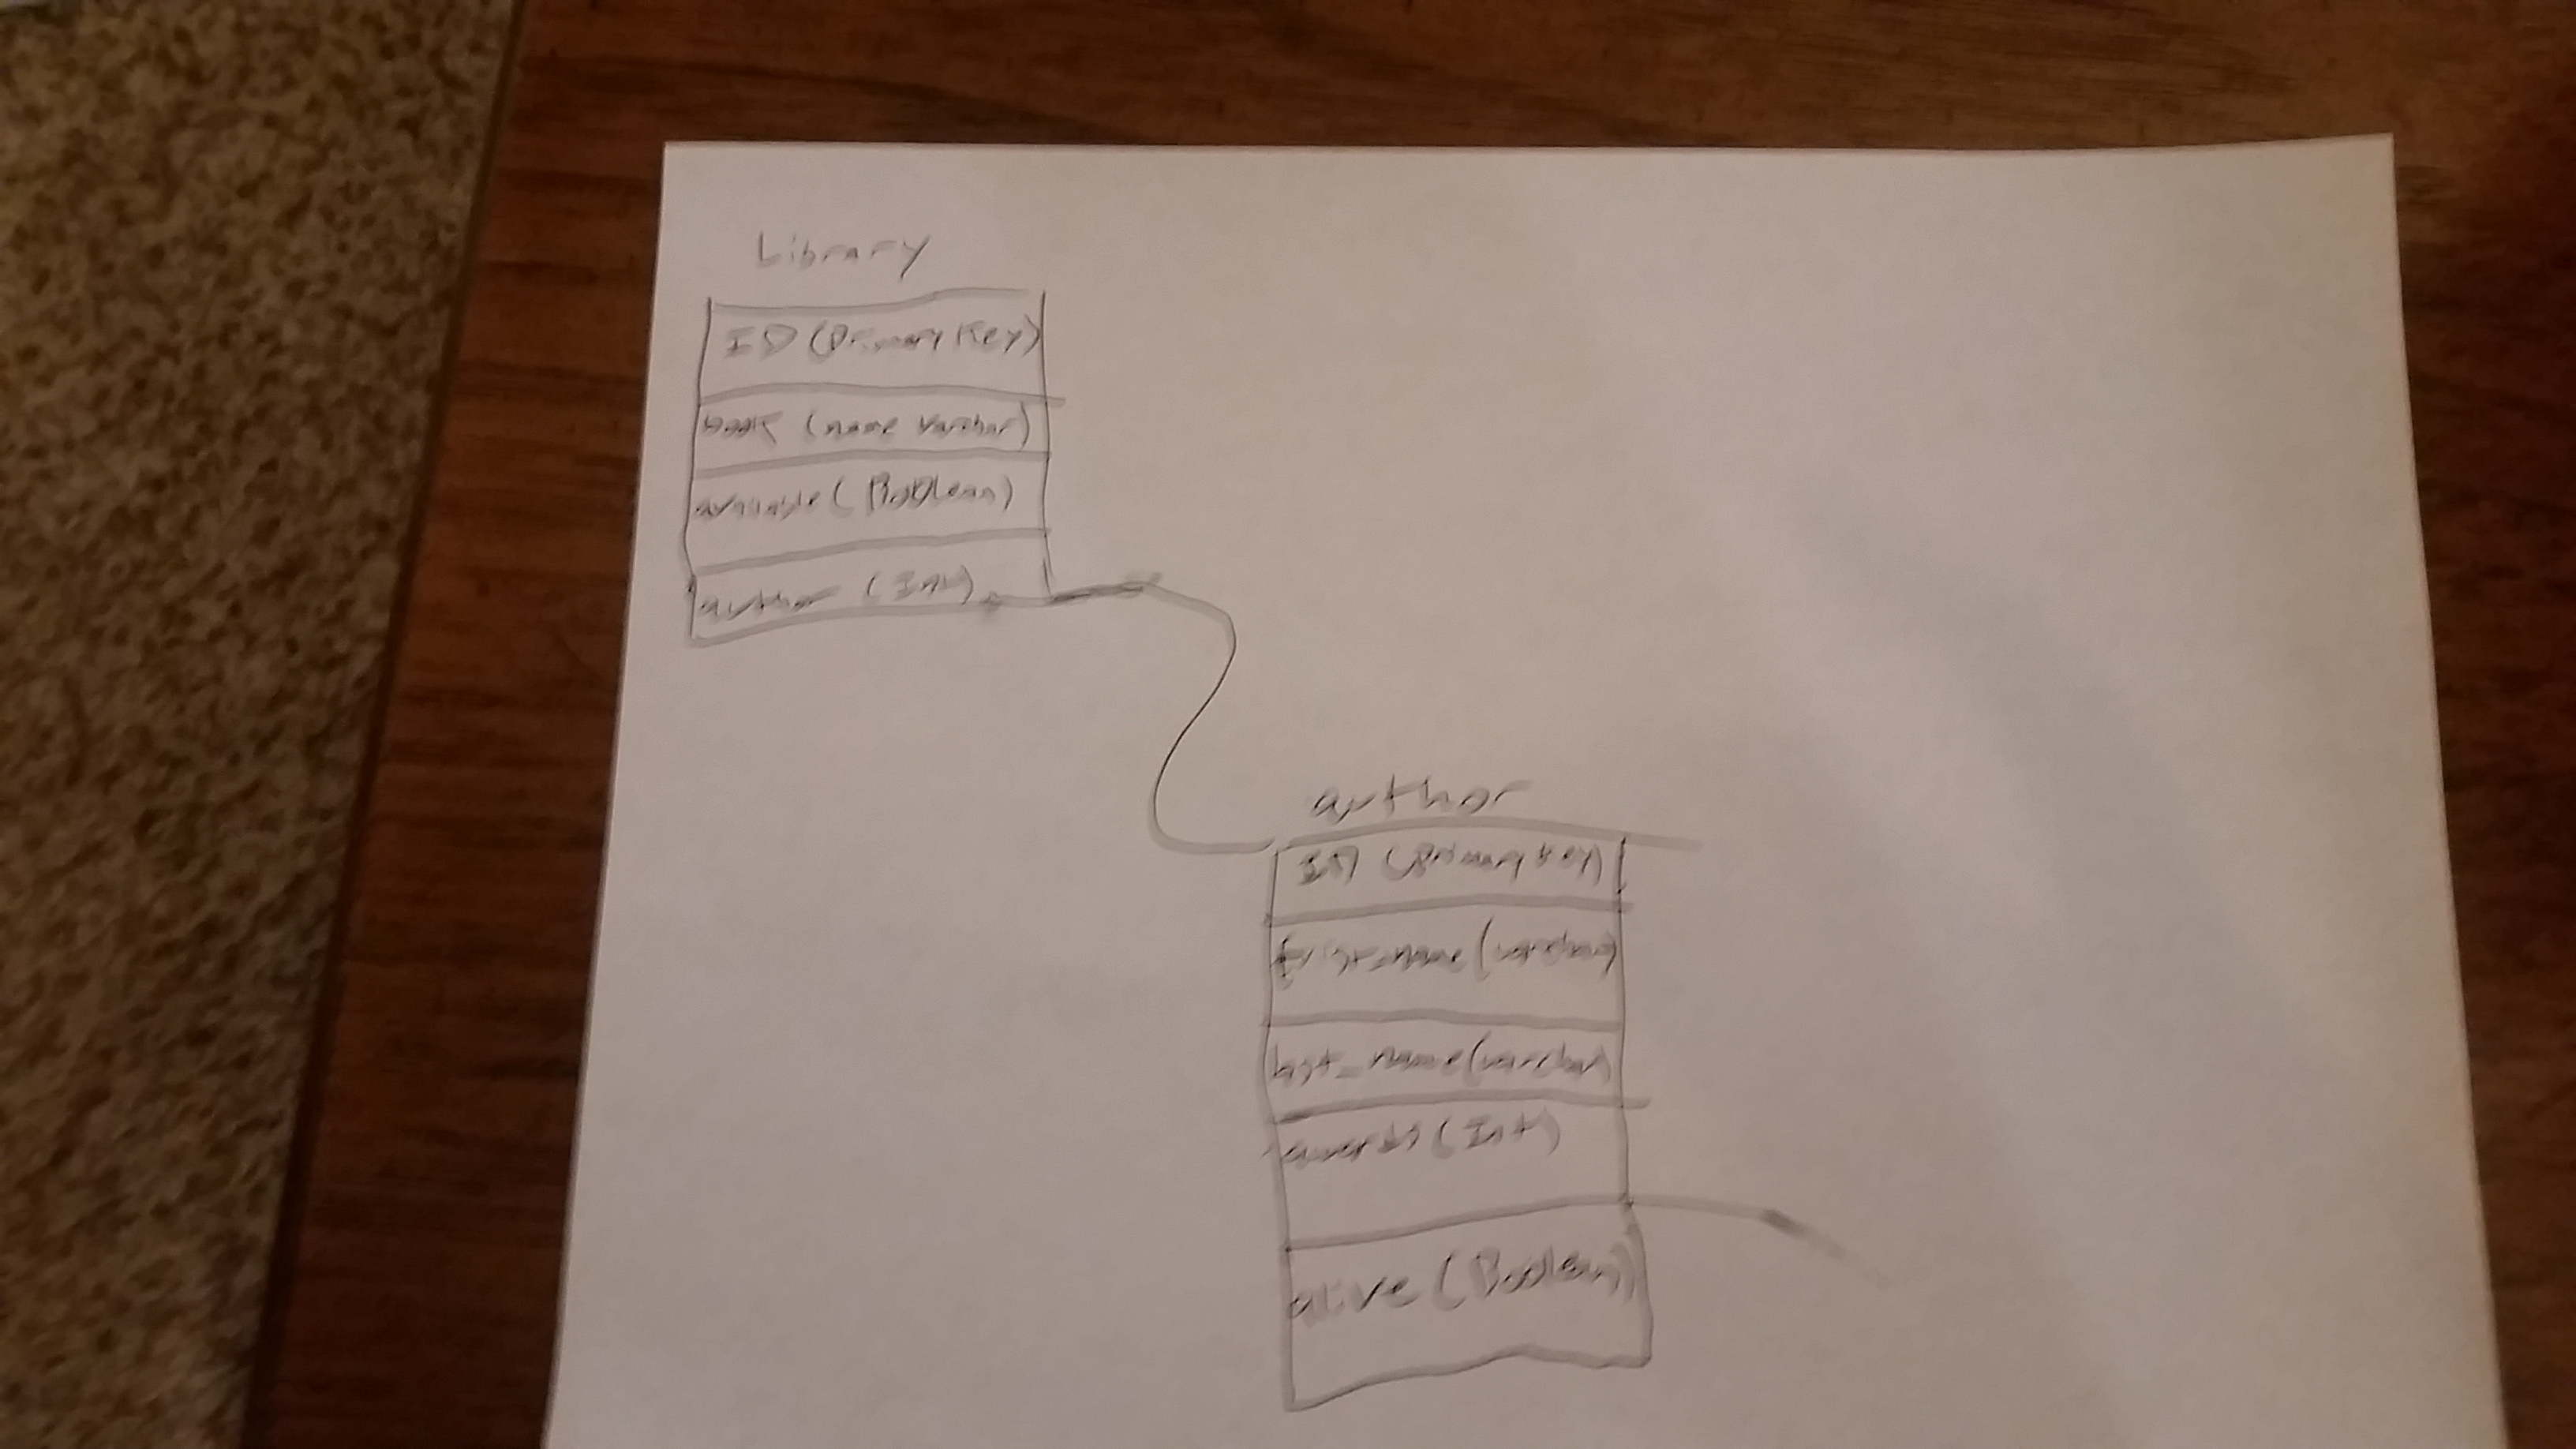 Library
ID (Primary Key)
book (name varchar)
available (Boolean)
author (Int)
author
ID (Primary Key)
frist_name (varchar)
last_name (varchar)
awards (Int)
alive (Boolean)